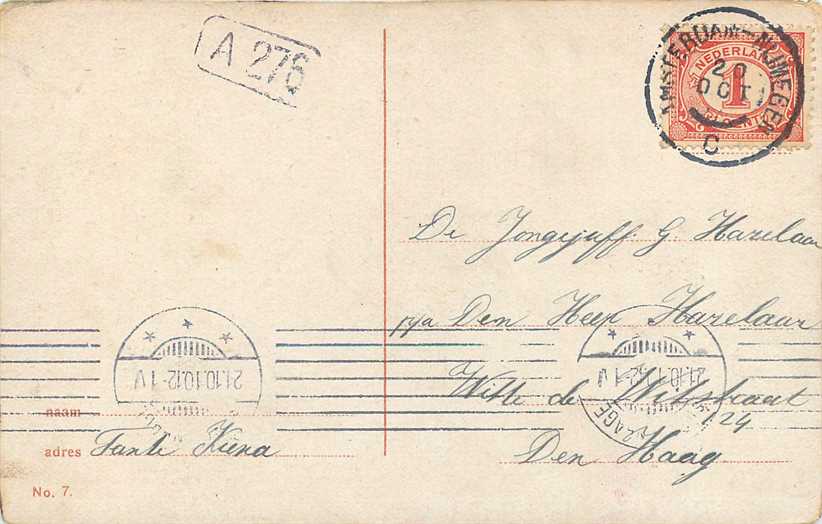 A 276
AMSTERDAM-NIJMEGEN
NEDERLAND
20
OCT
1
CENT
C
De Jongejuff G Hazelaar
p/a Den Heer Hazelaar
Witte de Withstraat
124
Den Haag
21.10.10.12-1V
21.10.10.12-1V
naam
adres Tante Kiena
No. 7.